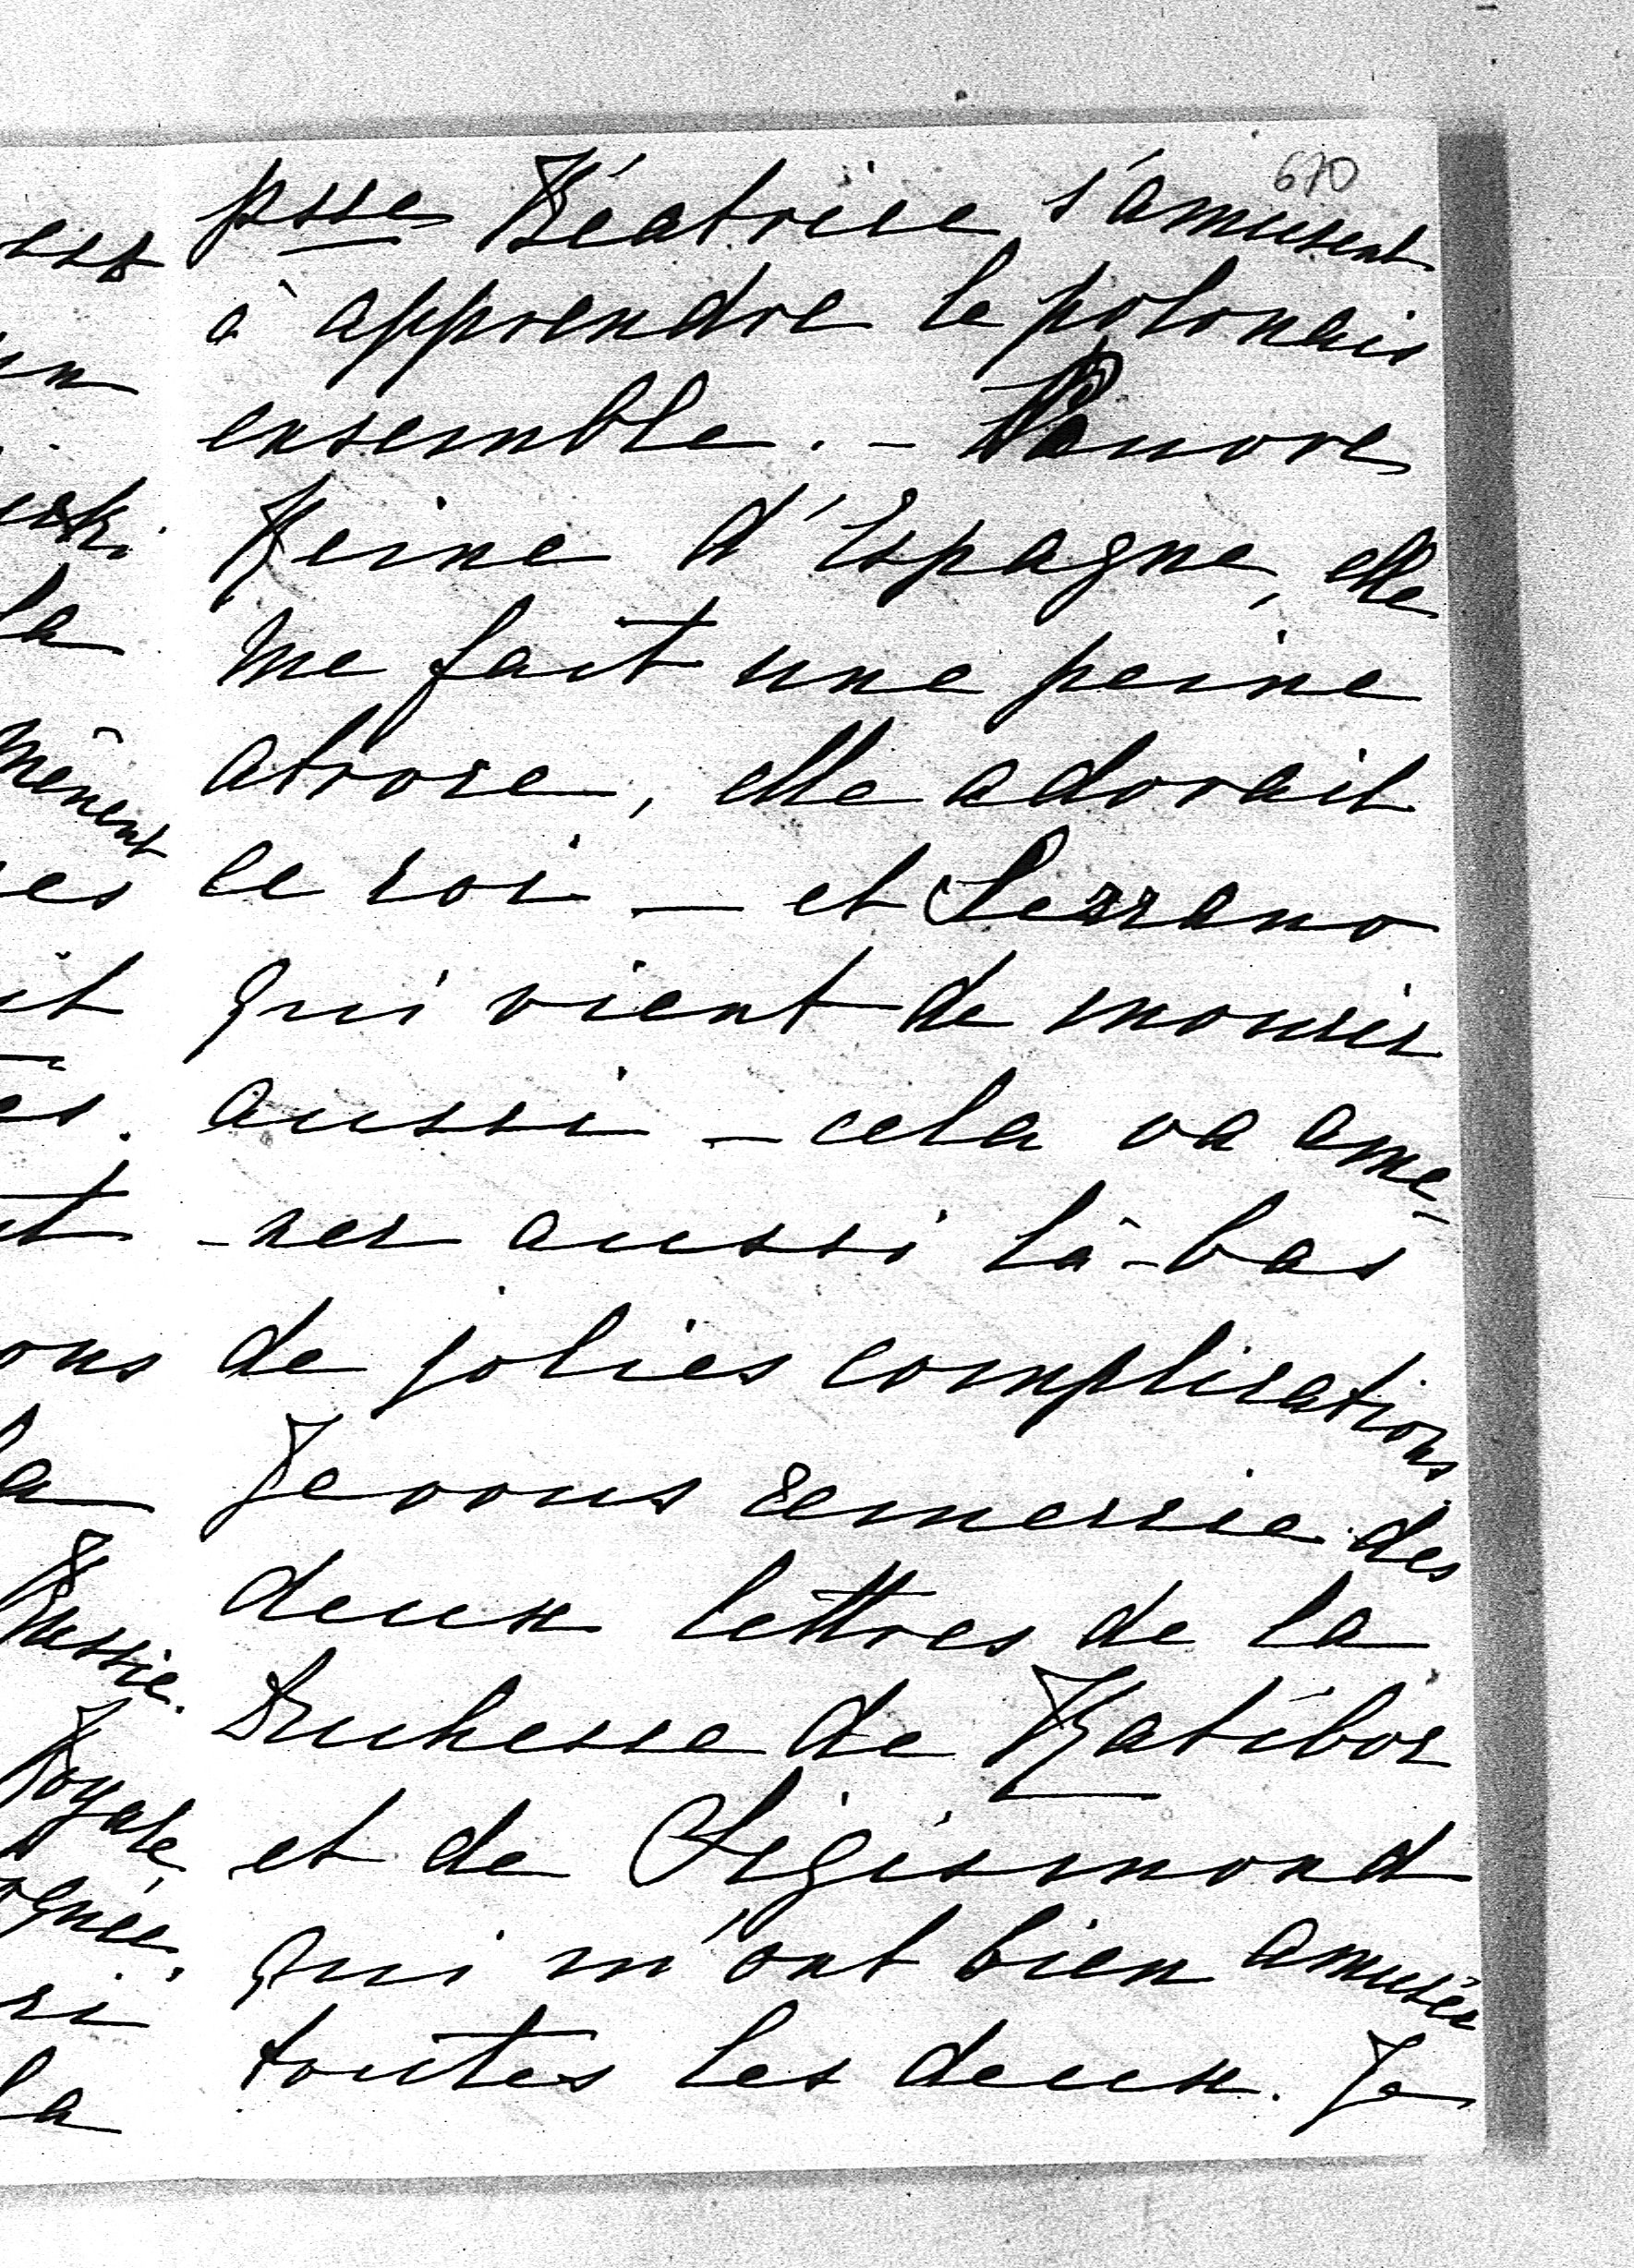 670
psse Béatrice s'amusent
à apprendre le polonais
ensemble. - Pauvre
Reine d'Espagne, elle
me fait une peine
atroce, elle adorait
ce roi - et Serrano
qui vient de mourir
aussi - cela va ame-
-ner aussi là-bas
de jolies complications.
Je vous remercie des
deux lettres de la
Duchesse de Ratibor
et de Sigismond
qui m'ont bien amusée
toutes les deux. Je
est
un
la
mènent
es
it
es.
t
ons
la
Russie.
Royale,
ognée,
ri
la